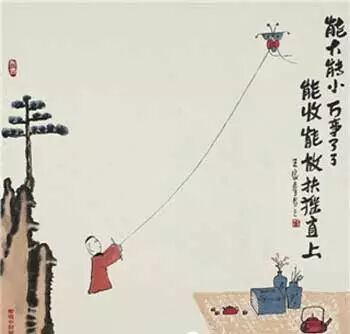 能大能小万事了了
能收能放扶摇直上